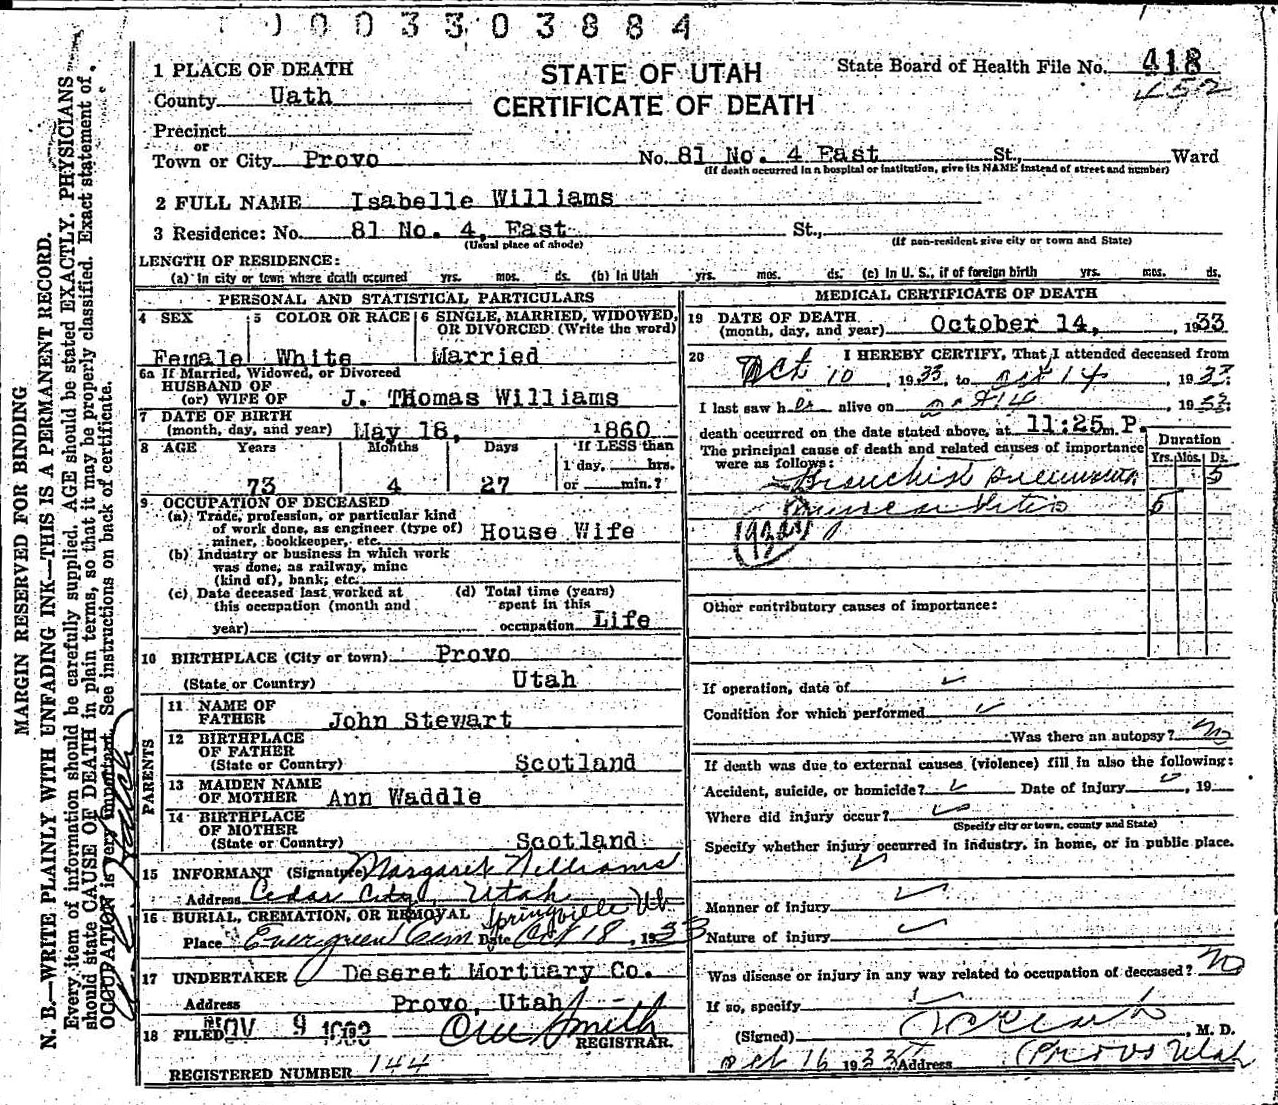 003303884
MARGIN RESERVED FOR BINDING
N. B.—WRITE PLAINLY WITH UNFADING INK—THIS IS A PERMANENT RECORD.
Every item of information should be carefully supplied. AGE should be stated EXACTLY. PHYSICIANS
should state CAUSE OF DEATH in plain terms, so that it may be properly classified. Exact statement of
OCCUPATION is very important. See instructions on back of certificate.
1 PLACE OF DEATH
STATE OF UTAH
State Board of Health File No. 418
County Uath
CERTIFICATE OF DEATH
452
Precinct
or
Town or City Provo No. 81 No. 4 East St., Ward
(If death occurred in a hospital or institution, give its NAME instead of street and number)
2 FULL NAME Isabelle Williams
3 Residence: No. 81 No. 4, East St.,
(Usual place of abode) (If non-resident give city or town and State)
LENGTH OF RESIDENCE:
(a) In city or town where death occurred yrs. mos. ds. (b) In Utah yrs. mos. ds. (c) In U. S., if of foreign birth yrs. mos. ds.
PERSONAL AND STATISTICAL PARTICULARS
4 SEX
Female
5 COLOR OR RACE
White
6 SINGLE, MARRIED, WIDOWED, OR DIVORCED. (Write the word)
Married
6a If Married, Widowed, or Divorced
HUSBAND OF
(or) WIFE OF J. Thomas Williams
7 DATE OF BIRTH
(month, day, and year) May 18, 1860
8 AGE Years Months Days If LESS than
1 day, hrs.
73 4 27 or min.?
9 OCCUPATION OF DECEASED
(a) Trade, profession, or particular kind
of work done, as engineer (type of)
miner, bookkeeper, etc. House Wife
(b) Industry or business in which work
was done, as railway, mine
(kind of), bank, etc.
(c) Date deceased last worked at
this occupation (month and
year)
(d) Total time (years)
spent in this
occupation Life
10 BIRTHPLACE (City or town) Provo
(State or Country) Utah
PARENTS
11 NAME OF
FATHER John Stewart
12 BIRTHPLACE
OF FATHER
(State or Country) Scotland
13 MAIDEN NAME
OF MOTHER Ann Waddle
14 BIRTHPLACE
OF MOTHER
(State or Country) Scotland
15 INFORMANT (Signature) Margaret Williams
Address Cedar City, Utah
16 BURIAL, CREMATION, OR REMOVAL Springville Ut.
Place Evergreen Cem Date Oct 18, 1933
17 UNDERTAKER Deseret Mortuary Co.
Address Provo, Utah
18 FILED NOV 9 Smith
REGISTRAR.
REGISTERED NUMBER 144
MEDICAL CERTIFICATE OF DEATH
19 DATE OF DEATH
(month, day, and year) October 14, 1933
20 I HEREBY CERTIFY, That I attended deceased from
Oct 10, 1933, to Oct 14, 1933.
I last saw her alive on Oct 14, 1933.
death occurred on the date stated above, at 11:25 m. P.
The principal cause of death and related causes of importance
were as follows:
Duration
Yrs. Mos. Ds.
Bronchial Pneumonia 5
5
Other contributory causes of importance:
If operation, date of ✓
Condition for which performed ✓
Was there an autopsy? No
If death was due to external causes (violence) fill in also the following:
Accident, suicide, or homicide? ✓ Date of injury ✓, 19
Where did injury occur? ✓
(Specify city or town, county and State)
Specify whether injury occurred in industry, in home, or in public place.
✓
✓
Manner of injury
Nature of injury ✓
Was disease or injury in any way related to occupation of deceased? No
If so, specify
(Signed) , M. D.
Oct 16 1933 Address Provo Utah